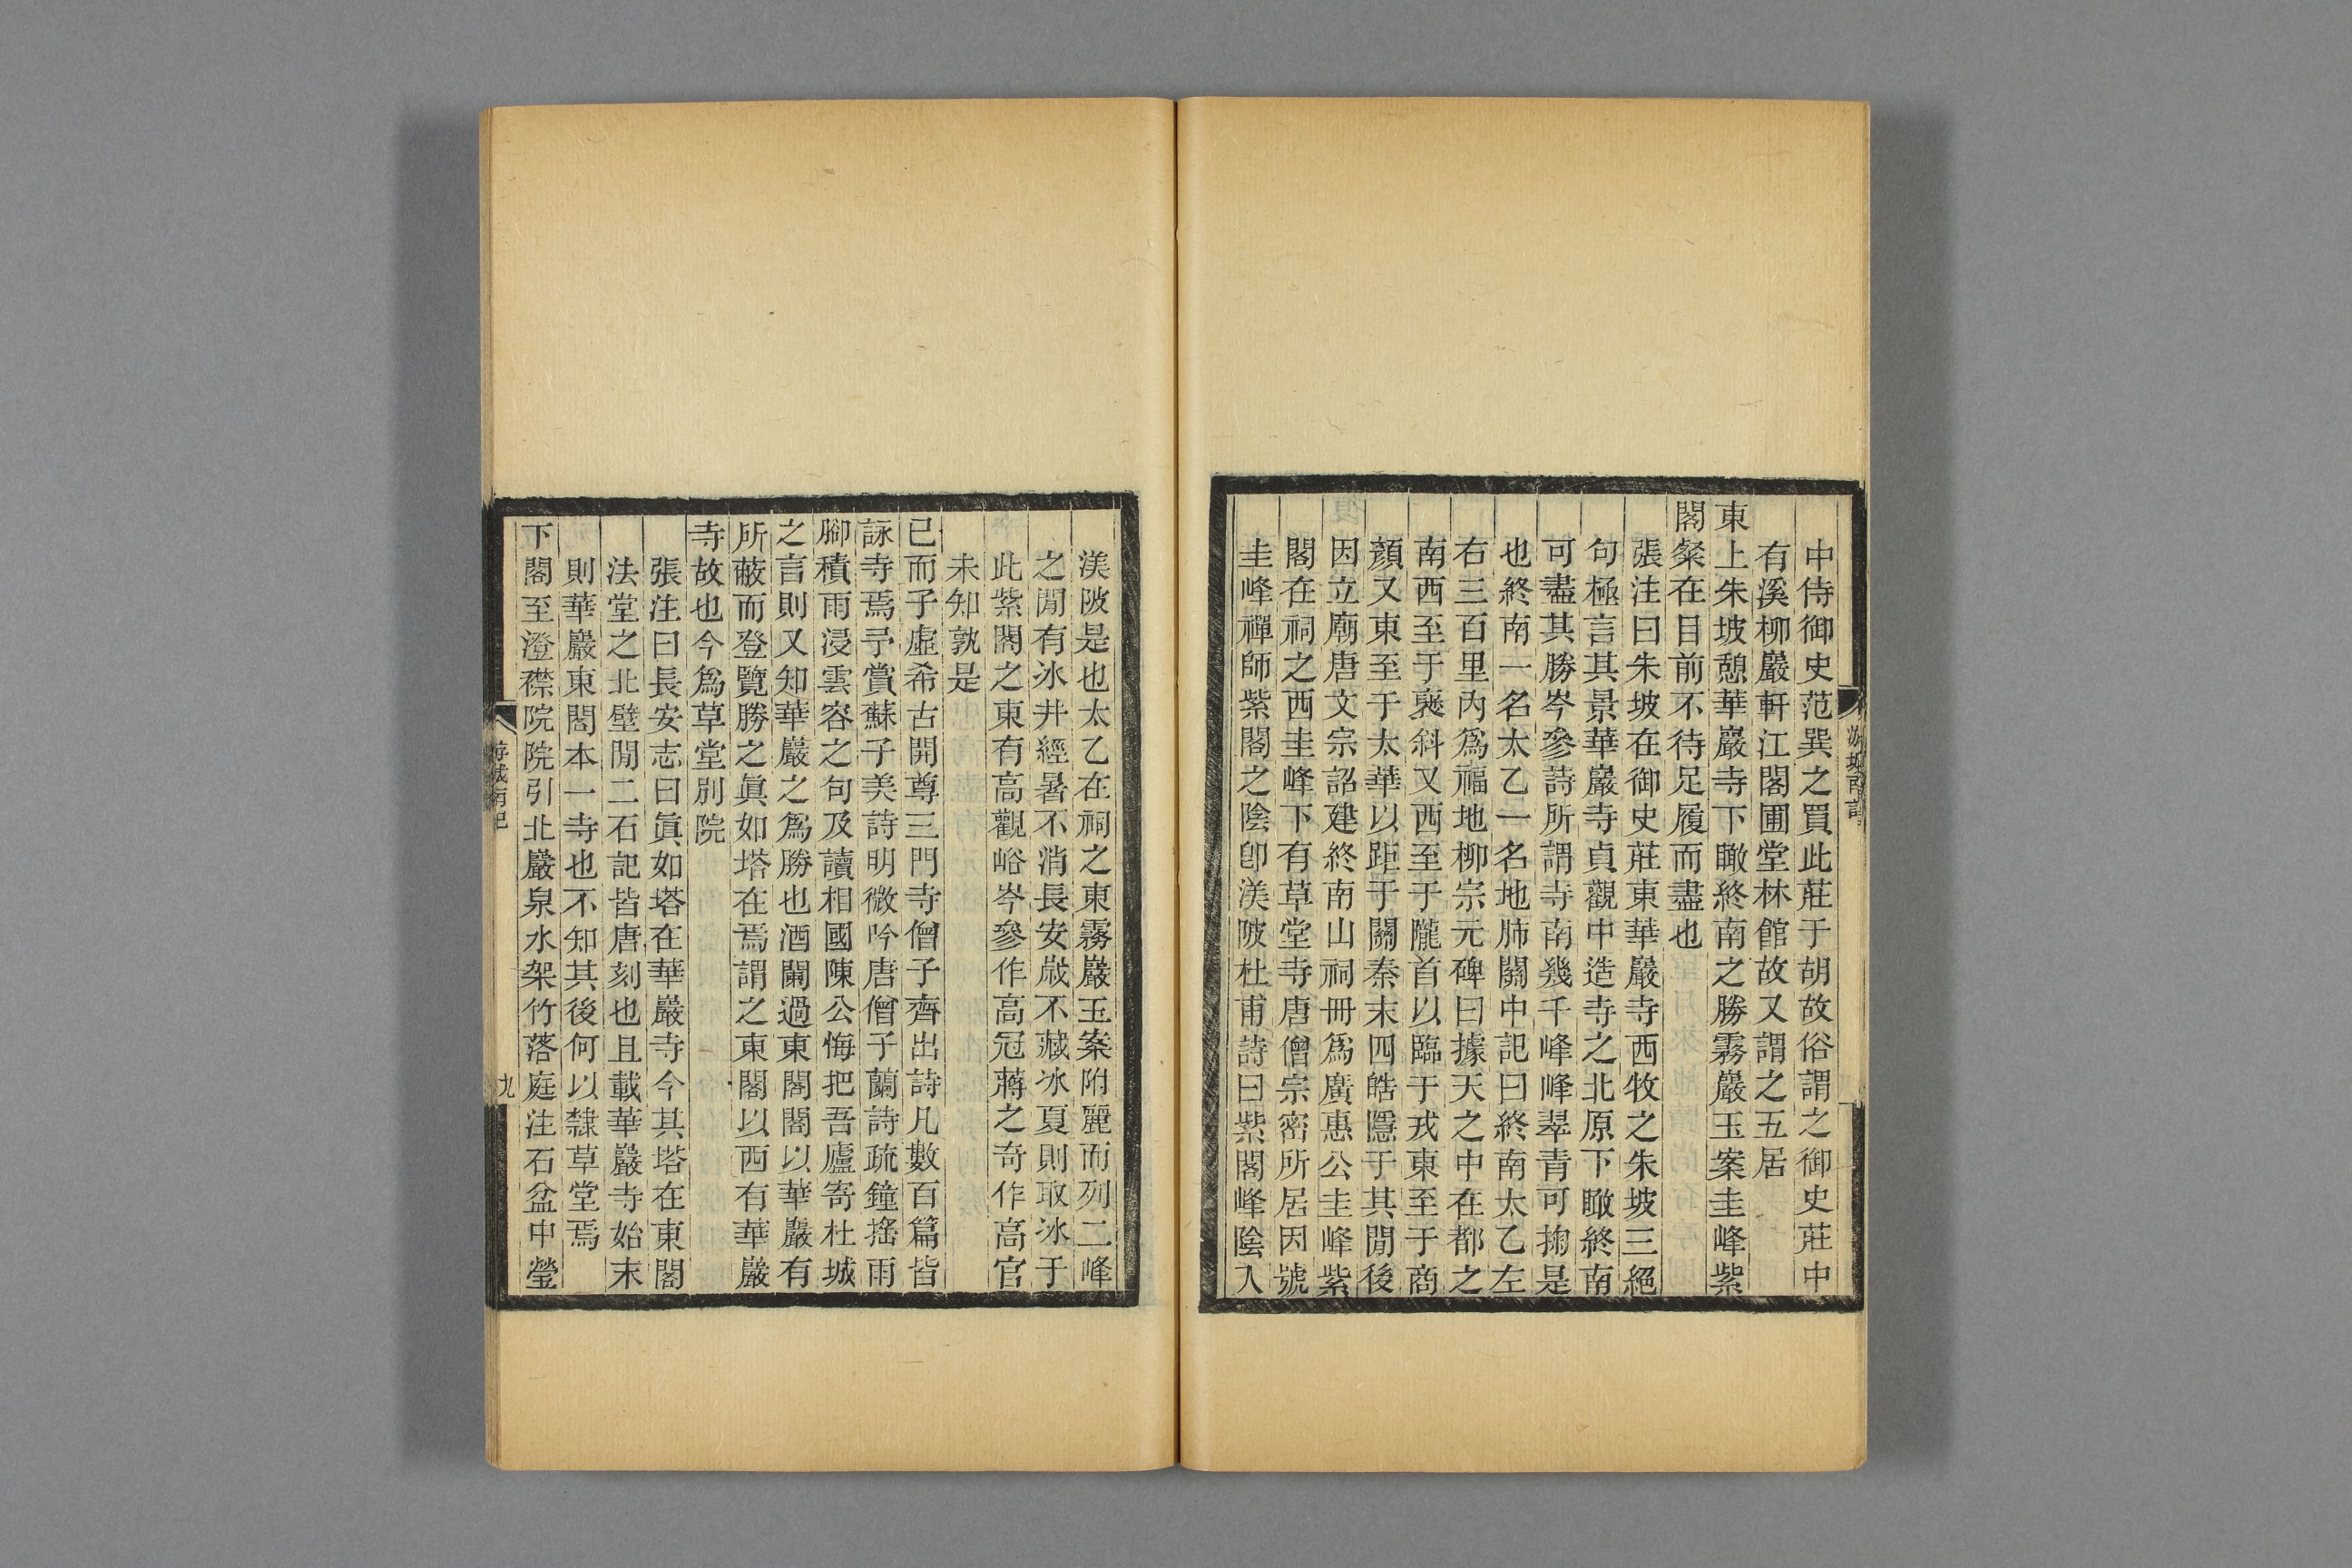 中侍御史范巽之買此莊于胡故俗謂之御史莊中
有溪柳巖軒江閣圃堂林館故又謂之五居
東上朱坡憩華巖寺下瞰終南之勝霧巖玉案圭峰紫
閣粲在目前不待足履而盡也
張注曰朱坡在御史莊東華巖寺西牧之朱坡三絕
句極言其景華巖寺貞觀中造寺之北原下瞰終南
可盡其勝岑參詩所謂寺南幾千峰峰翠青可掬是
也終南一名太乙一名地肺關中記曰終南太乙左
右三百里內爲福地柳宗元碑曰據天之中在都之
南西至于襃斜又西至于隴首以臨于戎東至于商
顏又東至于太華以距于關秦末四皓隱于其閒後
因立廟唐文宗詔建終南山祠冊爲廣惠公圭峰紫
閣在祠之西圭峰下有草堂寺唐僧宗密所居因號
圭峰禪師紫閣之陰卽渼陂杜甫詩曰紫閣峰陰入
渼陂是也太乙在祠之東霧巖玉案附麗而列二峰
之閒有冰井經暑不消長安歲不藏冰夏則取冰于
此紫閣之東有高觀峪岑參作高冠蔣之奇作高官
未知孰是
已而子虛希古開尊三門寺僧子齊出詩凡數百篇皆
詠寺焉予賞蘇子美詩明微吟唐僧子蘭詩疏鐘搖雨
腳積雨浸雲容之句及讀相國陳公悔把吾廬寄杜城
之言則又知華巖之爲勝也酒闌過東閣閣以華巖有
所蔽而登覽勝之眞如塔在焉謂之東閣以西有華巖
寺故也今爲草堂別院
張注曰長安志曰眞如塔在華巖寺今其塔在東閣
法堂之北壁閒二石記皆唐刻也且載華巖寺始末
則華巖東閣本一寺也不知其後何以隸草堂焉
下閣至澄襟院院引北巖泉水架竹落庭注石盆中瑩
游城南記
九